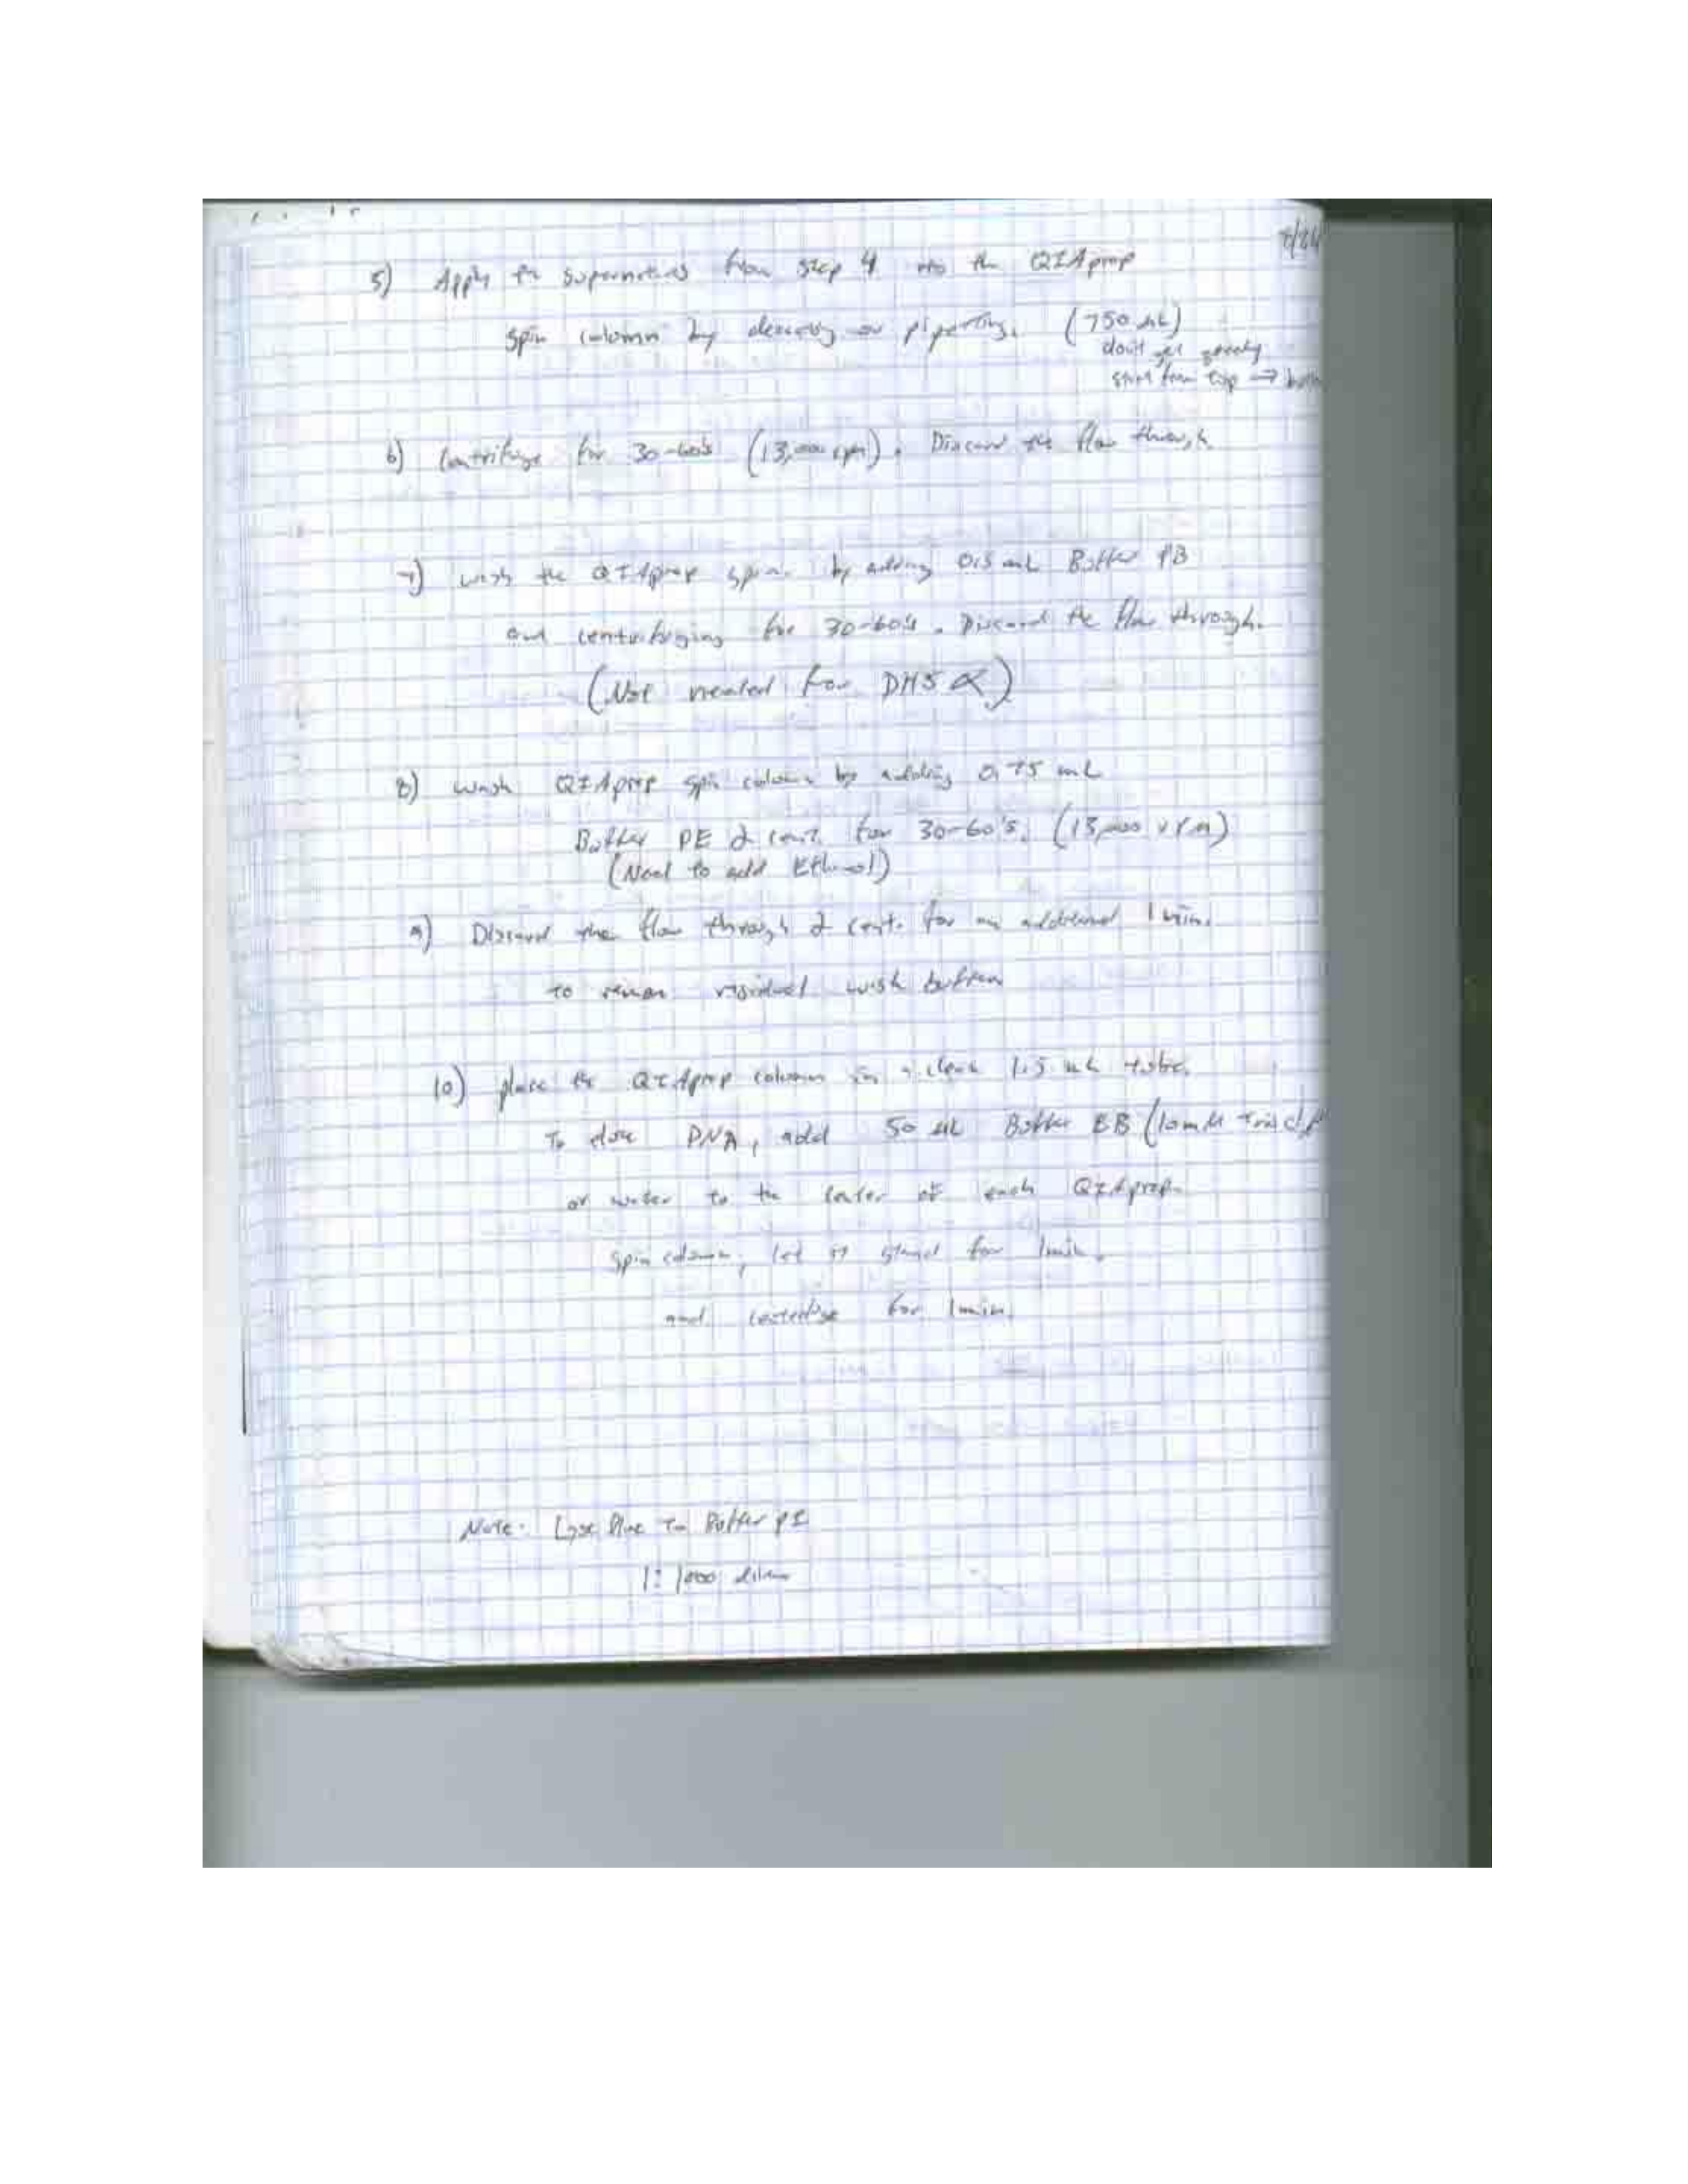 5) Apply the supernatants from step 4 into the QIAprep
spin column by decanting or pipetting. (750 µL)
don't get greedy
start from top →
6) Centrifuge for 30-60's (13,000 rpm). Discard the flow through.
7) wash the QIAprep spin by adding 0.5 mL Buffer PB
and centrifuging for 30-60's. Discard the flow through.
(Not needed for DH5α)
8) wash QIAprep spin column by adding 0.75 mL
Buffer PE & cent. for 30-60's. (13,000 rpm)
(Need to add Ethanol)
9) Discard the flow through & cent. for an additional 1 min.
to remove residual wash buffer
10) place the QIAprep column in a clean 1.5 mL tube.
To elute DNA, add 50 µL Buffer EB (10mM
or water to the center of each QIAprep
spin column, let it stand for 1 min.
and centrifuge for 1 min.
Note: Lyse Blue to Buffer P1
1:1000